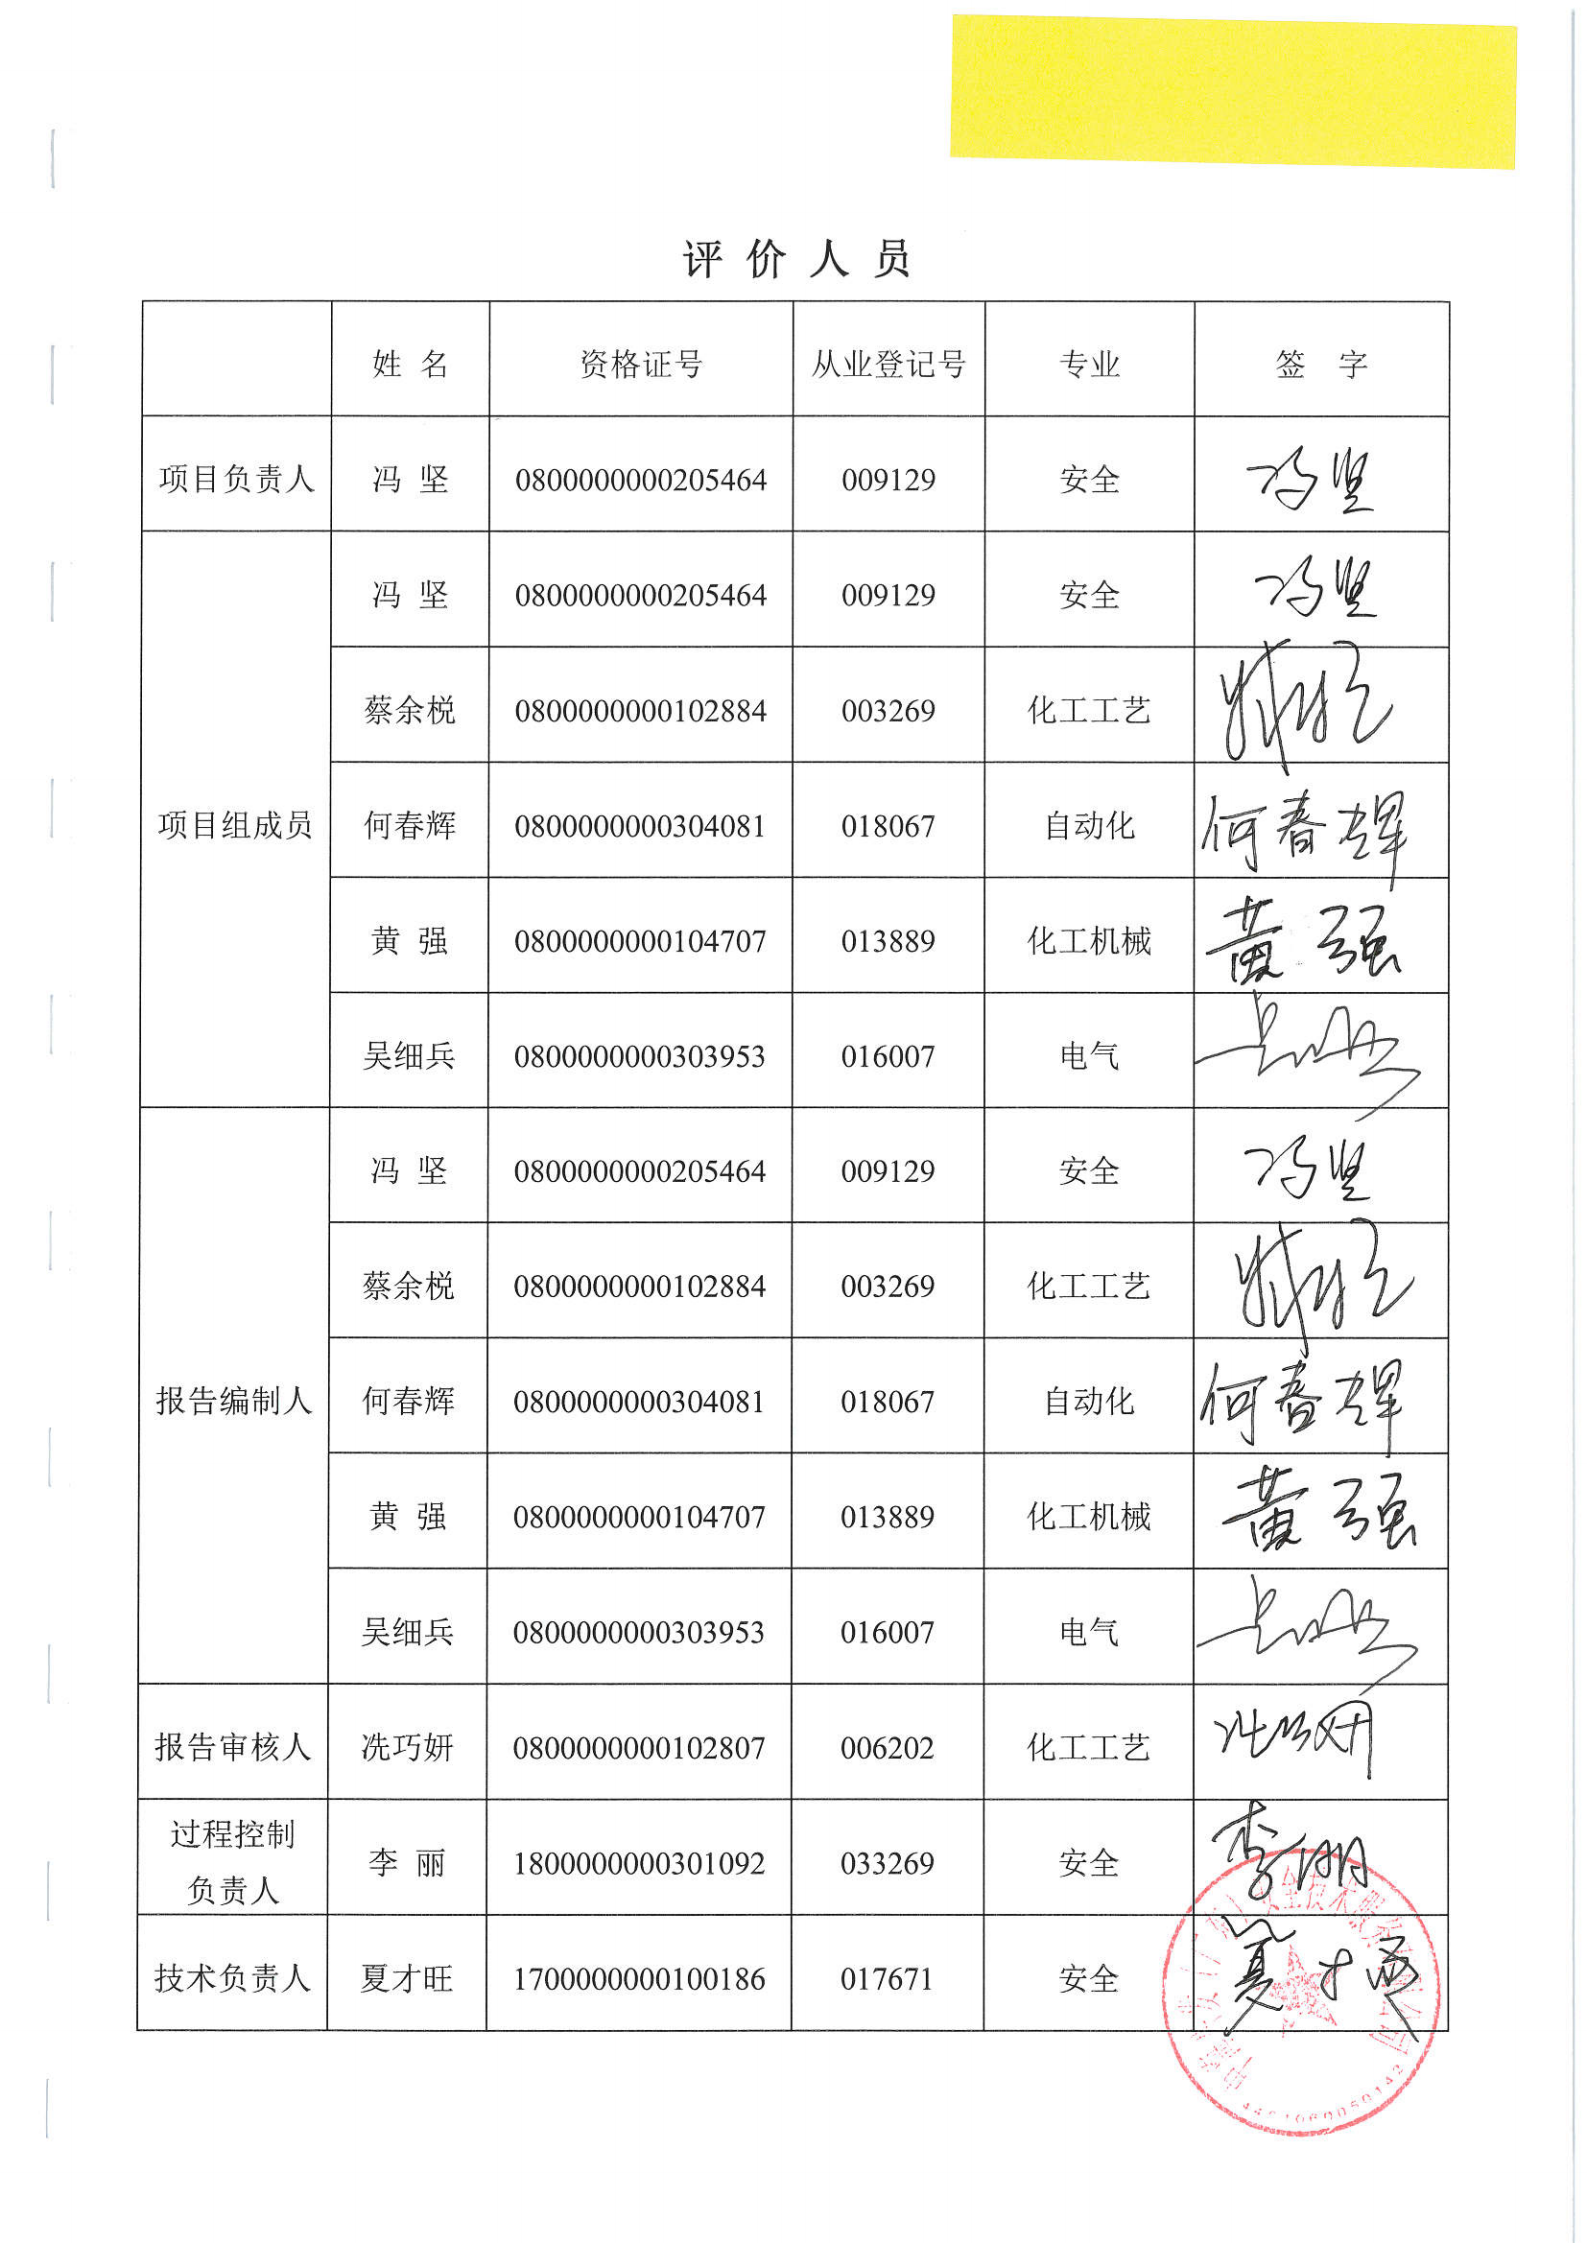 评价人员
姓名 资格证号 从业登记号 专业 签字
项目负责人 冯坚 0800000000205464 009129 安全 冯坚
项目组成员 冯坚 0800000000205464 009129 安全 冯坚
蔡余棁 0800000000102884 003269 化工工艺
何春辉 0800000000304081 018067 自动化 何春辉
黄强 0800000000104707 013889 化工机械 黄强
吴细兵 0800000000303953 016007 电气
报告编制人 冯坚 0800000000205464 009129 安全 冯坚
蔡余棁 0800000000102884 003269 化工工艺
何春辉 0800000000304081 018067 自动化 何春辉
黄强 0800000000104707 013889 化工机械 黄强
吴细兵 0800000000303953 016007 电气
报告审核人 冼巧妍 0800000000102807 006202 化工工艺 冼巧妍
过程控制
负责人 李丽 1800000000301092 033269 安全 李丽
技术负责人 夏才旺 1700000000100186 017671 安全 夏才旺